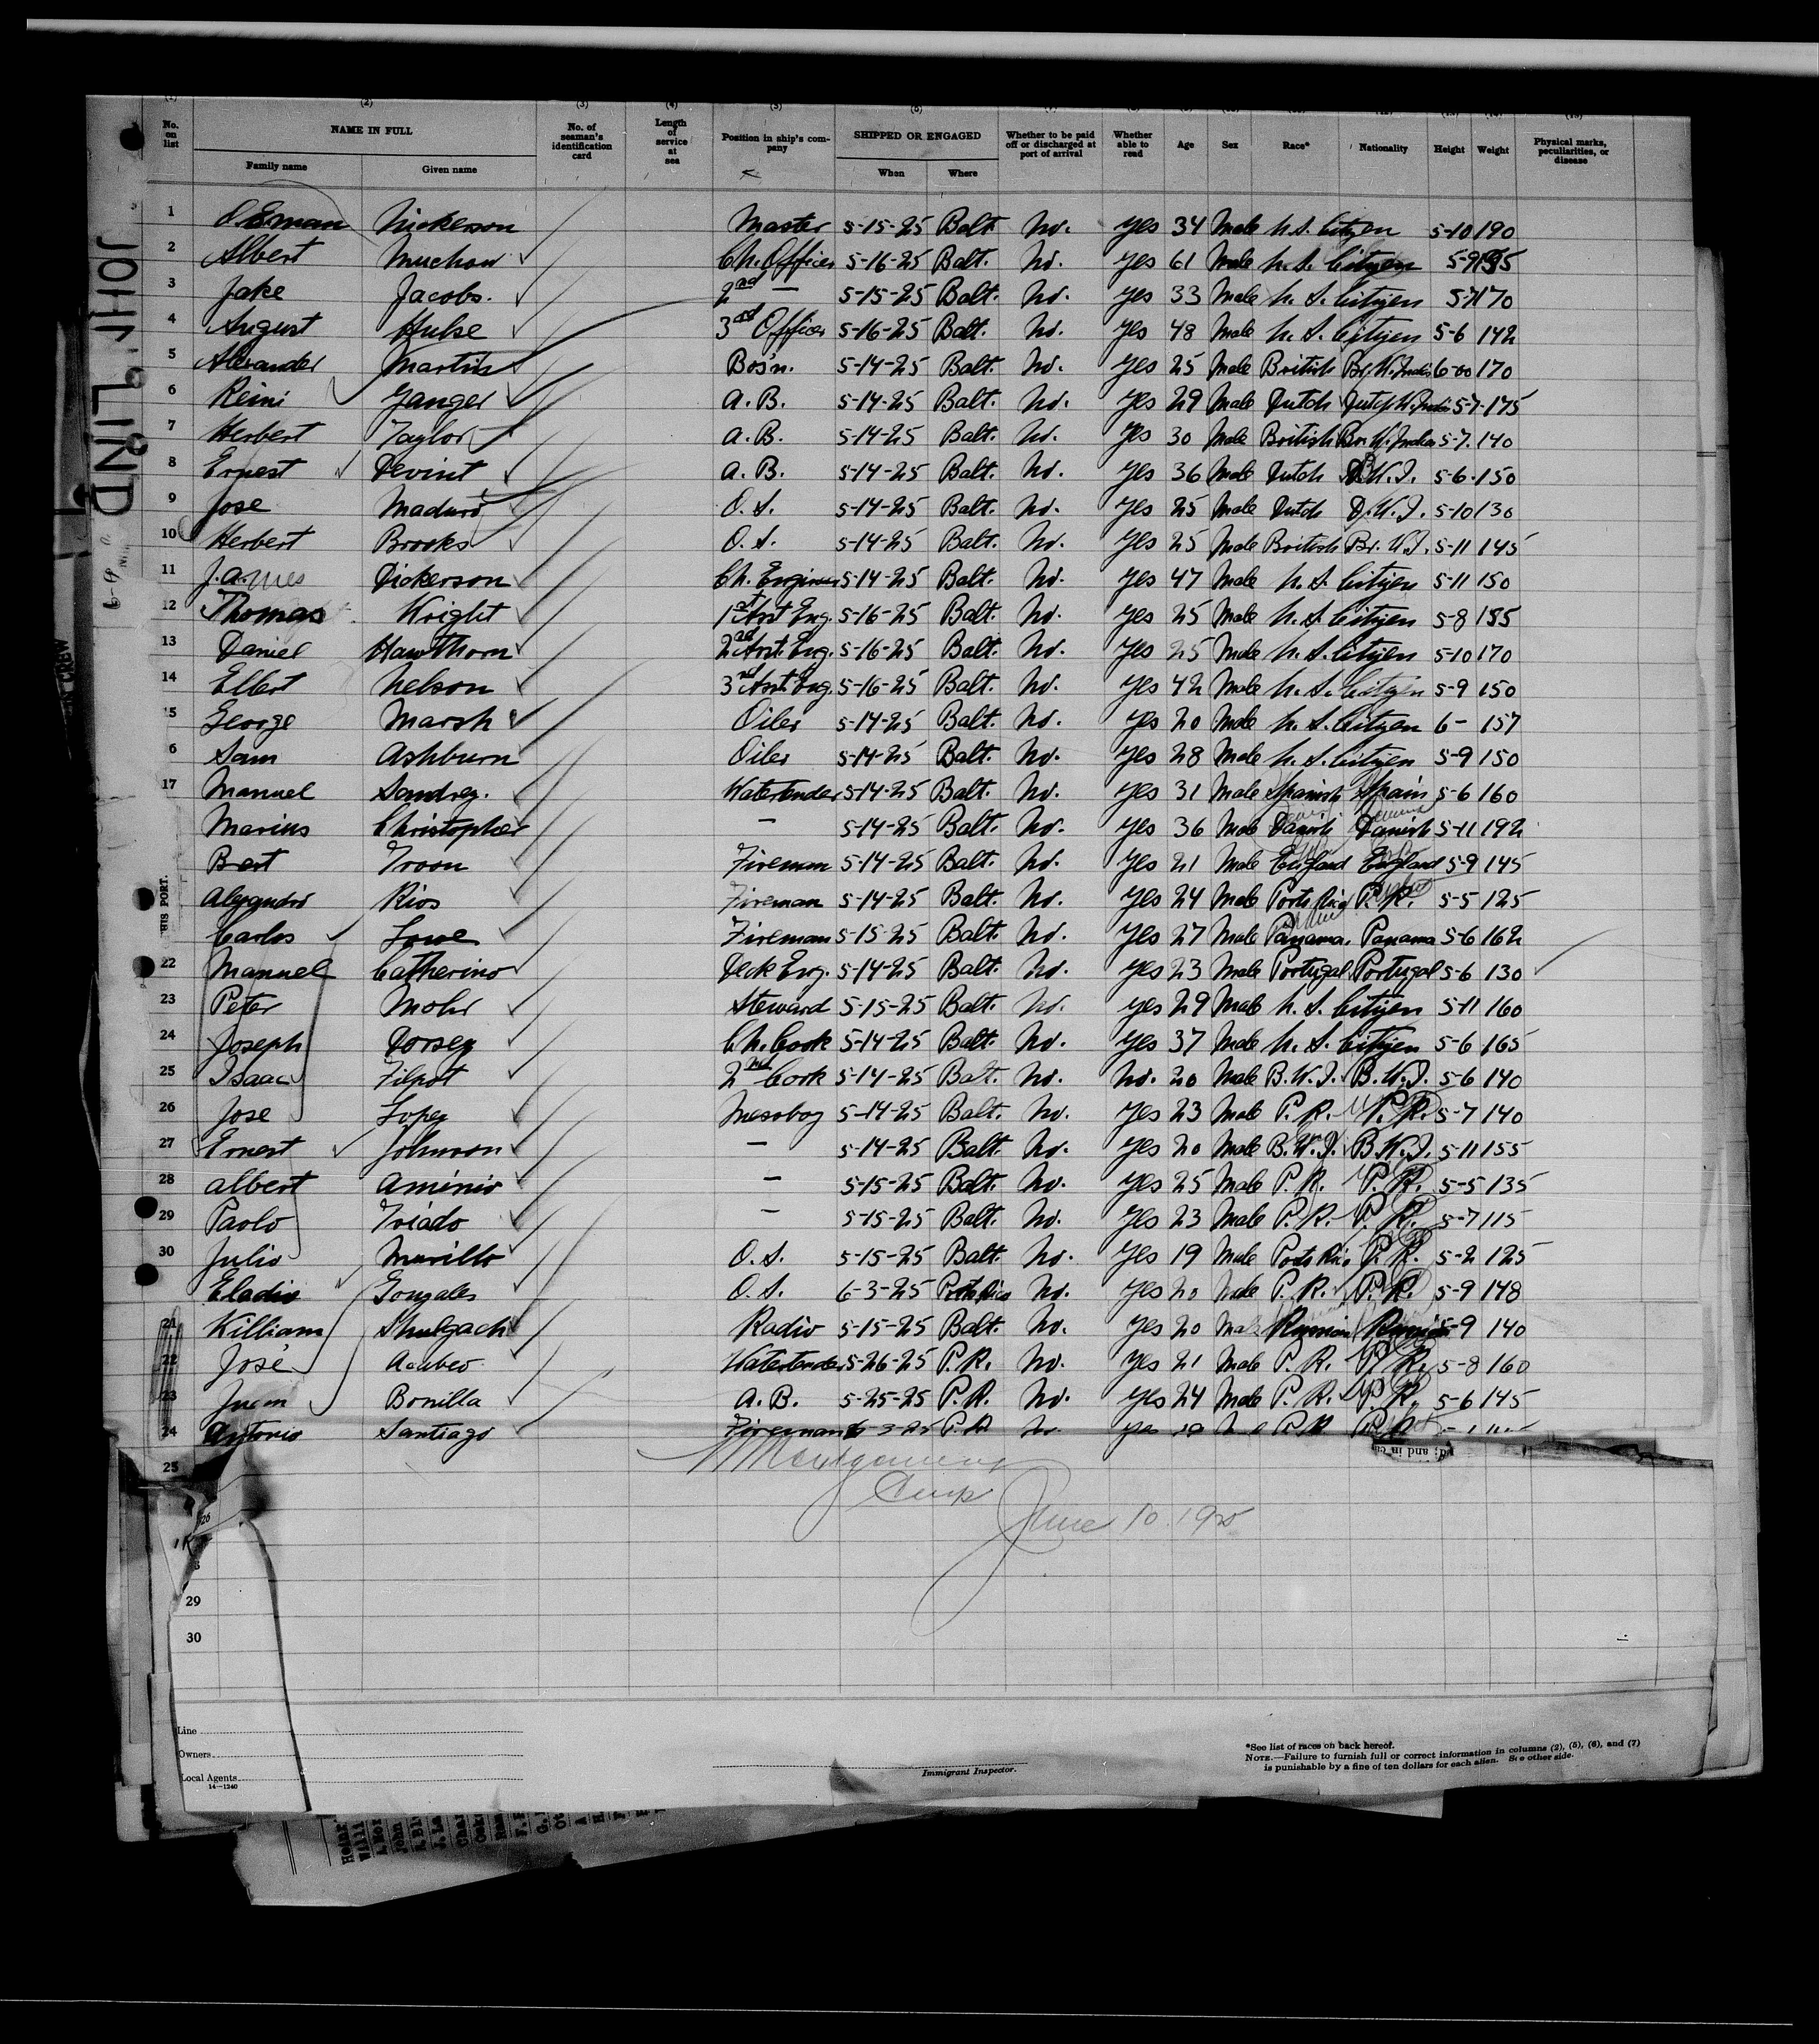 (2) (3) (4) (5) (6)
No. on list NAME IN FULL No. of seaman's identification card Length of service at sea Position in ship's company SHIPPED OR ENGAGED Whether to be paid off or discharged at port of arrival Whether able to read Age Sex Race* Nationality Height Weight Physical marks, peculiarities, or disease
Family name Given name When Where
1 Nickerson Master 5-15-25 Balt. No. Yes 34 Male U.S. Citizen 5-10 190
2 Albert Muchow Ch. Officer 5-16-25 Balt. No. Yes 61 Male U.S. Citizen 5-9
3 Jake Jacobs. 2nd — 5-15-25 Balt. No. Yes 33 Male U.S. Citizen 5-7 170
4 August Hulse 3rd Officer 5-16-25 Balt. No. Yes 48 Male U.S. Citizen 5-6 142
5 Alexander Martin Bos'n. 5-14-25 Balt. No. Yes 25 Male British Br. W. Indies 6-00 170
6 Reini Yanger A.B. 5-14-25 Balt. No. Yes 29 Male Dutch Dutch W. Indies 5-7- 175
7 Herbert Taylor A.B. 5-14-25 Balt. No. Yes 30 Male British Br. W. Indies 5-7. 140
8 Ernest Devint A.B. 5-14-25 Balt. No. Yes 36 Male Dutch D.W.I. 5-6. 150
9 Jose Maduro O.S. 5-14-25 Balt. No. Yes 25 Male Dutch D.W.I. 5-10 130
10 Herbert Brooks O.S. 5-14-25 Balt. No. Yes 25 Male British Br. W.I. 5-11 145
11 J.A. mes Dickerson Ch. Engineer 5-14-25 Balt. No. Yes 47 Male U.S. Citizen 5-11 150
12 Thomas Wright 1st Asst Eng. 5-16-25 Balt. No. Yes 25 Male U.S. Citizen 5-8 185
13 Daniel Hawthorn 2nd Asst. Eng. 5-16-25 Balt. No. Yes 25 Male U.S. Citizen 5-10 170
14 Elbert Nelson 3rd Asst. Eng. 5-16-25 Balt. No. Yes 42 Male U.S. Citizen 5-9 150
15 George Marsh Oiler 5-14-25 Balt. No. Yes 20 Male U.S. Citizen 6- 157
6 Sam Ashburn Oiler 5-14-25 Balt. No. Yes 28 Male U.S. Citizen 5-9 150
17 Manuel Sandrez. Watertender 5-14-25 Balt. No. Yes 31 Male Spanish Spain 5-6 160
Marius Christopher — 5-14-25 Balt. No. Yes 36 Male Danish Danish 5-11 192
Bert Troon Fireman 5-14-25 Balt. No. Yes 21 Male England England 5-9 145
Alejandro Rios Fireman 5-14-25 Balt. No. Yes 24 Male Porto Rico P.R. 5-5 125
Carlos Lowe Fireman 5-15-25 Balt. No. Yes 27 Male Panama. Panama 5-6 162
22 Manuel Catherino Deck Eng. 5-14-25 Balt. No. Yes 23 Male Portugal Portugal 5-6 130
23 Peter Mohr Steward 5-15-25 Balt. No. Yes 29 Male U.S. Citizen 5-11 160
24 Joseph Dorsey Ch. Cook 5-14-25 Balt. No. Yes 37 Male U.S. Citizen 5-6 165
25 Isaac Filpot 2nd Cook 5-14-25 Balt. No. No. 20 Male B.W.I. B.W.I. 5-6 140
26 Jose Lopez Messboy 5-14-25 Balt. No. Yes 23 Male P.R. P.R. 5-7 140
27 Ernest Johnson — 5-14-25 Balt. No. Yes 20 Male B.W.I. B.W.I. 5-11 155
28 Albert Aminio — 5-15-25 Balt. No. Yes 25 Male P.R. P.R. 5-5 135
29 Paolo Triado — 5-15-25 Balt. No. Yes 23 Male P.R. P.R. 5-7 115
30 Julio Murillo O.S. 5-15-25 Balt. No. Yes 19 Male Porto Rico P.R. 5-2 125
Eladio Gonzales O.S. 6-3-25 Porto Rico No. Yes 20 Male P.R. P.R. 5-9 148
21 William Shulgach Radio 5-15-25 Balt. No. Yes 20 Male Russian Russian 5-9 140
22 José Acubeo Watertender 5-26-25 P.R. No. Yes 21 Male P.R. P.R. 5-8 160
23 Juan Bonilla A.B. 5-25-25 P.R. No. Yes 24 Male P.R. P.R. 5-6 145
24 Antonio Santiago Fireman 6-3-25 P.R. No. Yes P.R. P.R.
25
Montgomery
June 10. 1925
26
29
30
JOHN LIND
HIS PORT.
Line
Owners
Local Agents
14—1240
Immigrant Inspector.
*See list of races on back hereof.
NOTE.—Failure to furnish full or correct information in columns (2), (5), (6), and (7)
is punishable by a fine of ten dollars for each alien. See other side.